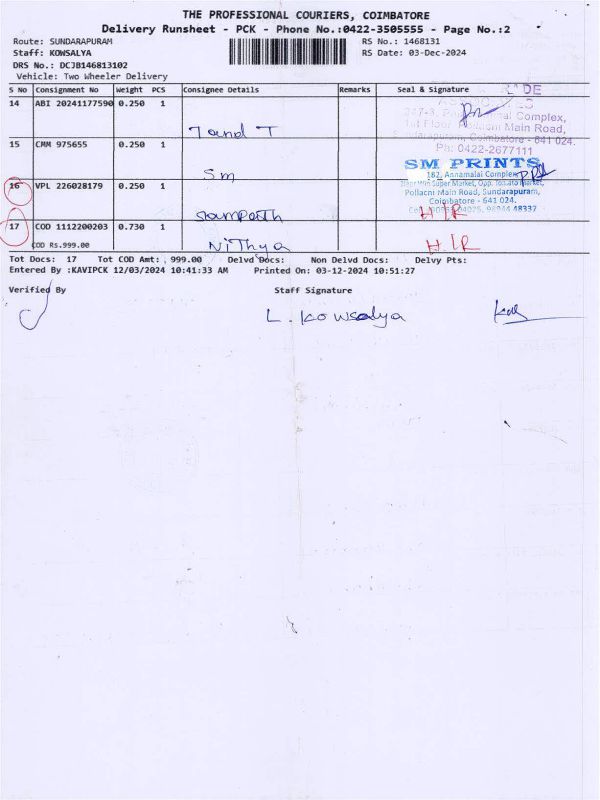 THE PROFESSIONAL COURIERS, COIMBATORE
Delivery Runsheet - PCK - Phone No.:0422-3505555 - Page No.:2
Route: SUNDARAPURAM RS No.: 1468131
Staff: KOWSALYA RS Date: 03-Dec-2024
DRS No.: DCJB146813102
Vehicle: Two Wheeler Delivery
S No Consignment No Weight PCS Consignee Details Remarks Seal & Signature
14 ABI 20241177590 0.250 1
T and T
Complex,
1st Floor, Pollachi Main Road,
Sundarapuram, Coimbatore - 641 024.
Ph: 0422-2677111
15 CMM 975655 0.250 1
Sm
SM PRINTS
182, Annamalai Complex,
Super Market, Opp. Tomato Market,
Pollachi Main Road, Sundarapuram,
Coimbatore - 641 024.
16 VPL 226028179 0.250 1
Sampath H.I.R
17 COD 1112200203 0.730 1
COD Rs.999.00 Nithya H.I.R
Tot Docs: 17 Tot COD Amt: 999.00 Delvd Docs: Non Delvd Docs: Delvy Pts:
Entered By :KAVIPCK 12/03/2024 10:41:33 AM Printed On: 03-12-2024 10:51:27
Verified By Staff Signature
L. Kowsalya